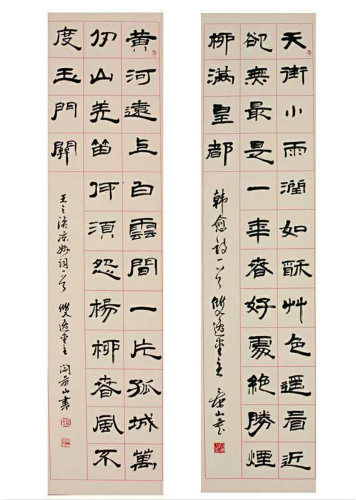 天街小雨潤如酥艸色遥看近
卻無最是一年春好處絕勝煙
柳滿皇都
韩愈詩一首
山書
黃河遠上白雲間一片孤城萬
仞山羌笛何須怨楊柳春風不
度玉門關
王之渙涼州詞一首
山書